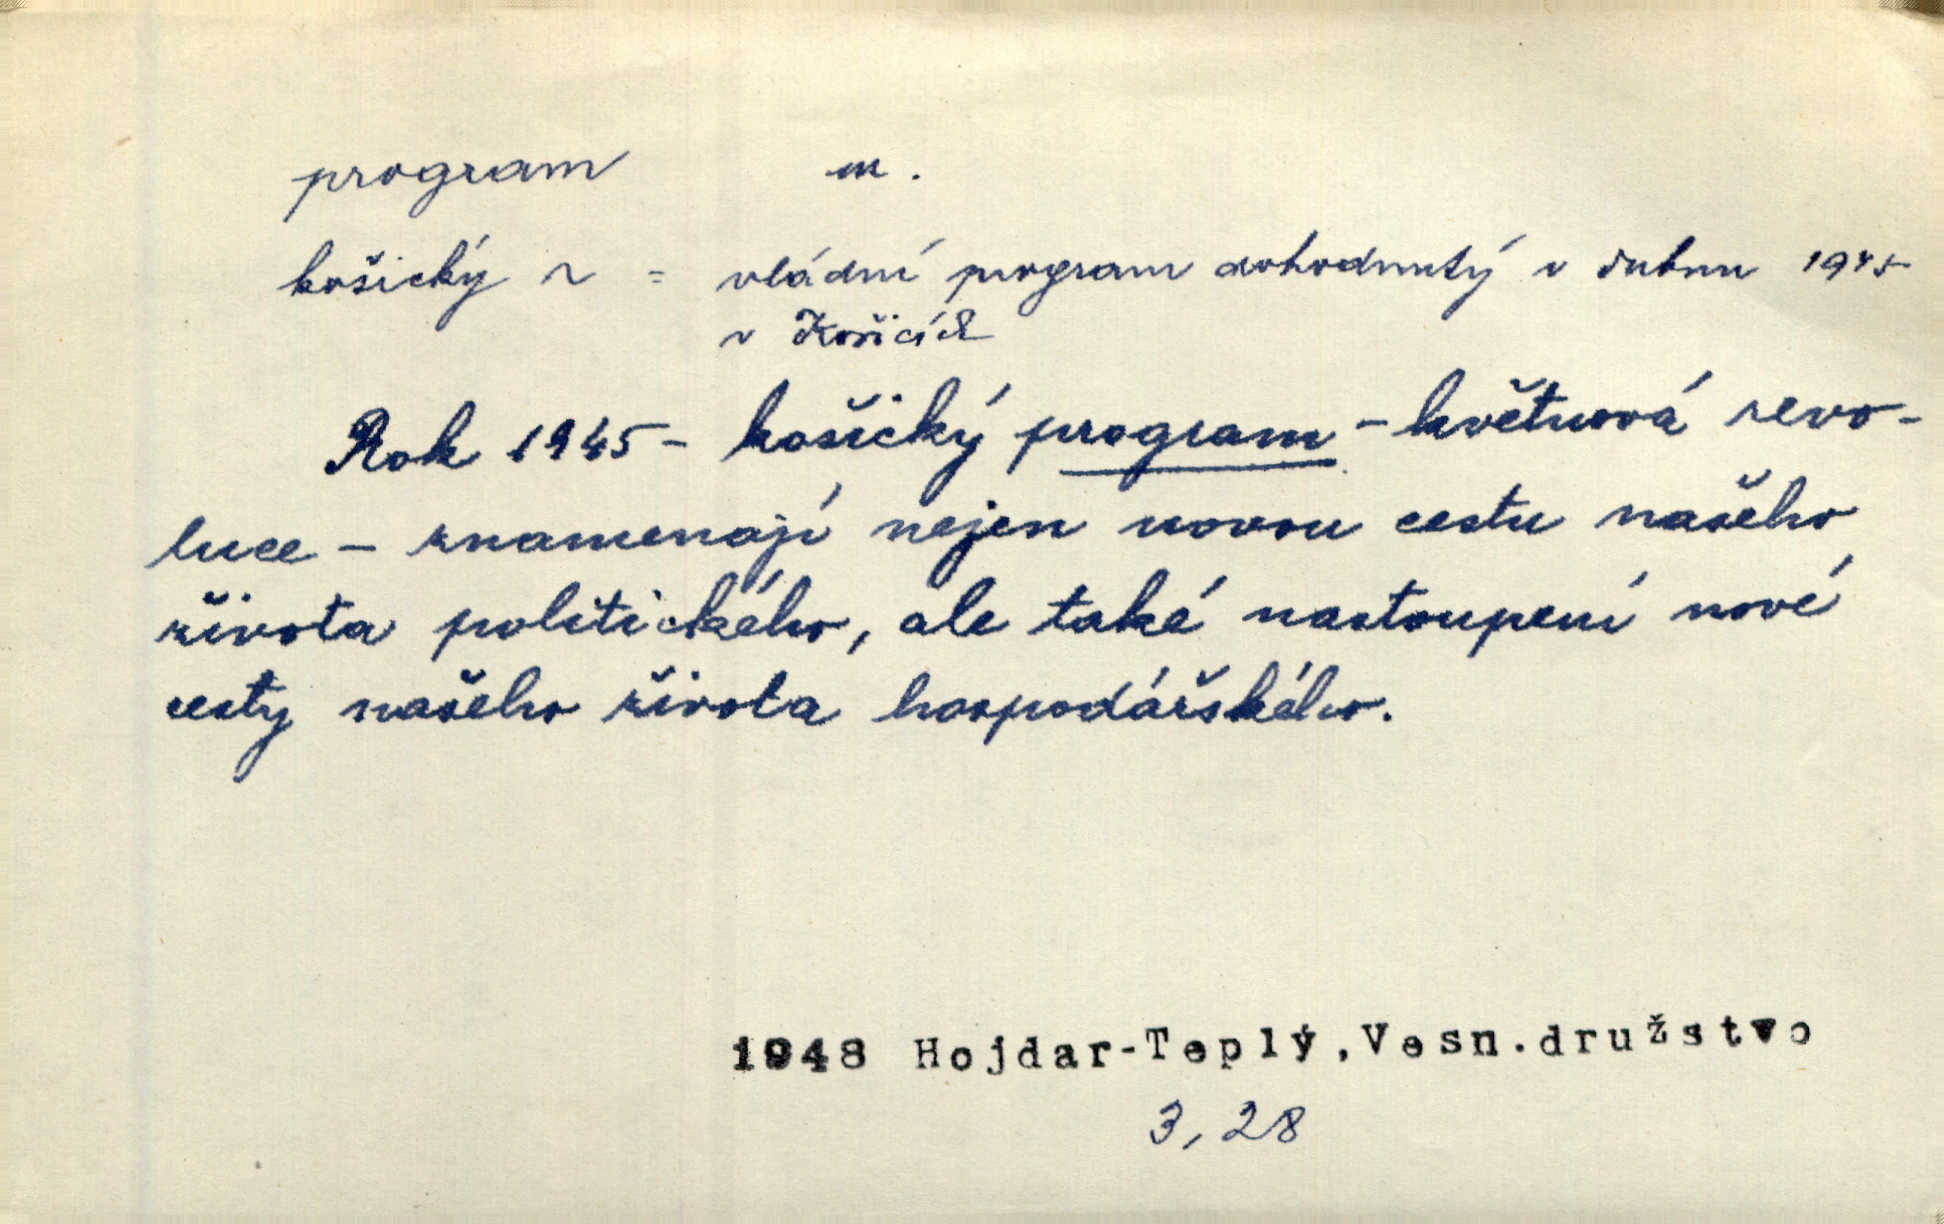 program m.
košický ~ = vládní program dohodnutý v dubnu 1945
v Košicích
Rok 1945 - košický program - květnová revo-
luce - znamenají nejen novou cestu našeho
života politického, ale také nastoupení nové
cesty našeho života hospodářského.
1948 Hojdar-Teplý, Vesn. družstvo
3, 28